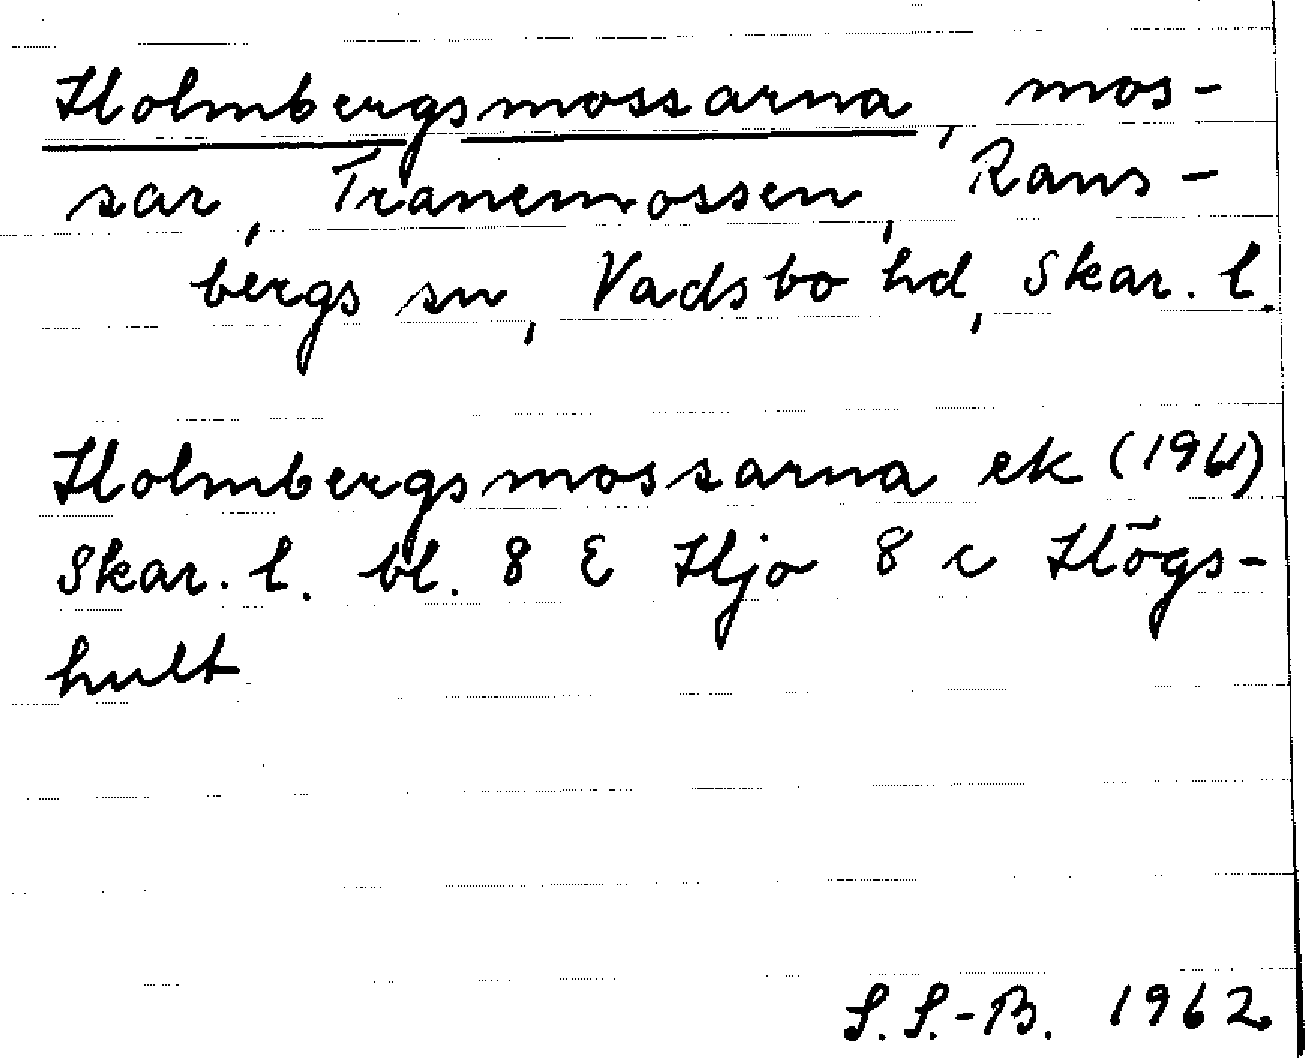 Holmbergsmossarna, mos-
sar, Tranemossen, Rans-
bergs sn, Vadsbo hd, Skar. l.
Holmbergsmossarna ek (1961)
Skar. l. bl. 8 E Hjo 8 c Högs-
hult
S. S.-B. 1962